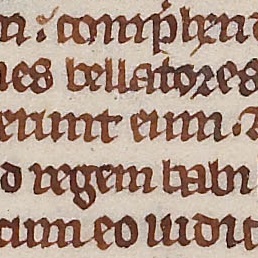 m: comp̄hen
nes bellatores
erunt eum.
d regem babi
cum eo iudic